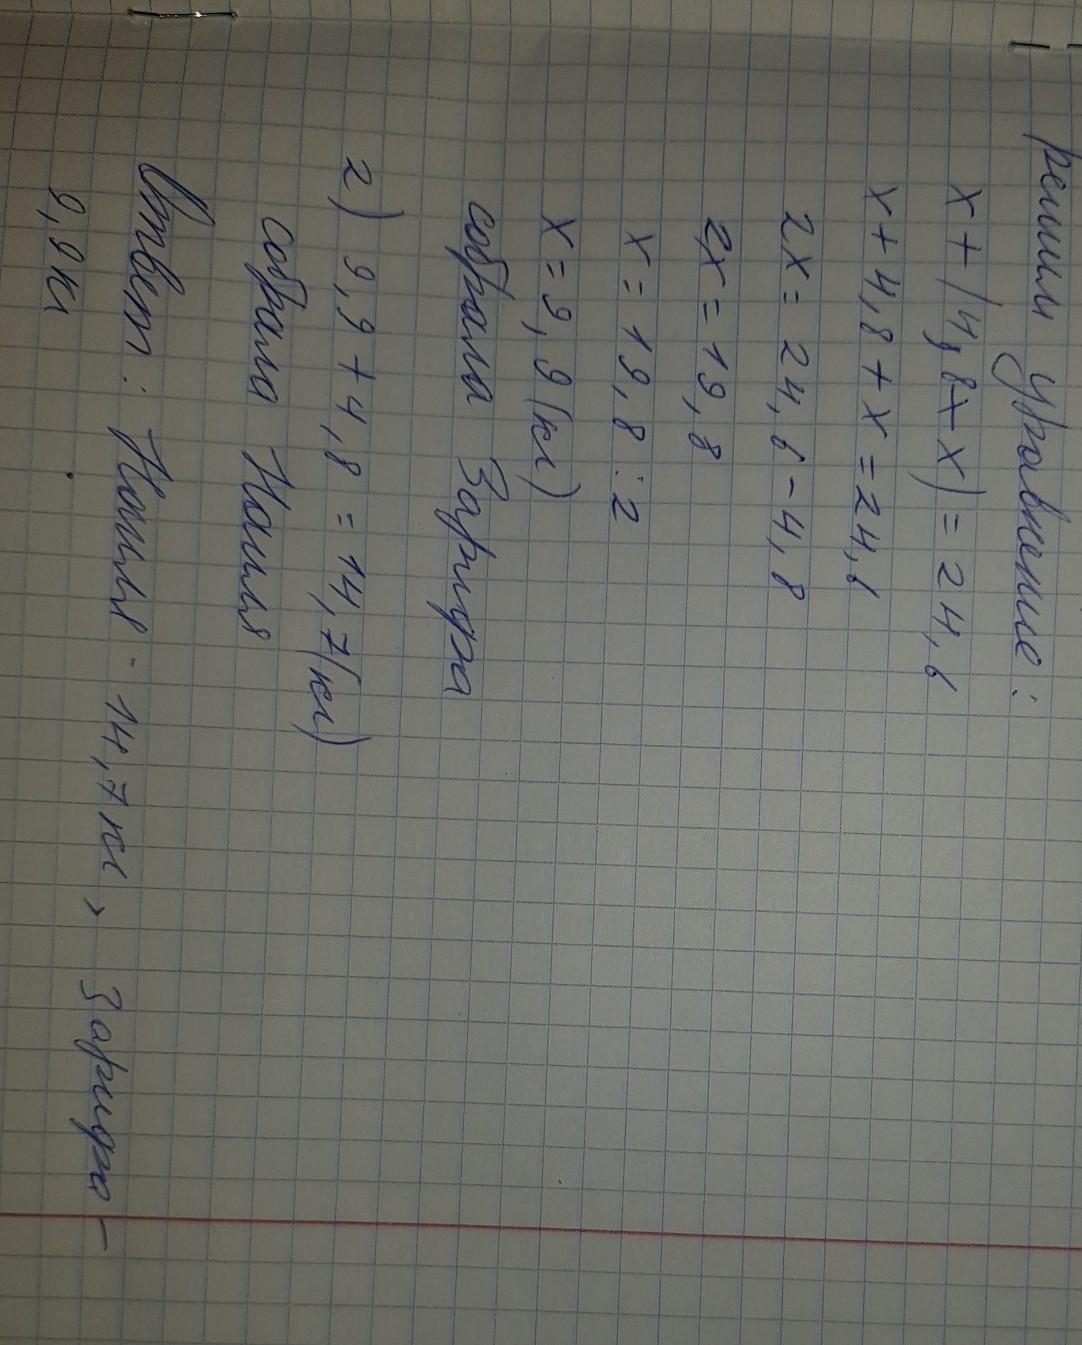 решим уравнение:
x + (4,8+x) = 24,6
x + 4,8 + x = 24,6
2x = 24,6 - 4,8
2x = 19,8
x = 19,8 : 2
x = 9,9 (кг)
собрала Зарифа
2) 9,9 + 4,8 = 14,7 (кг)
собрала Наиля
Ответ: Наиля - 14,7 кг, Зарифа -
9,9 кг